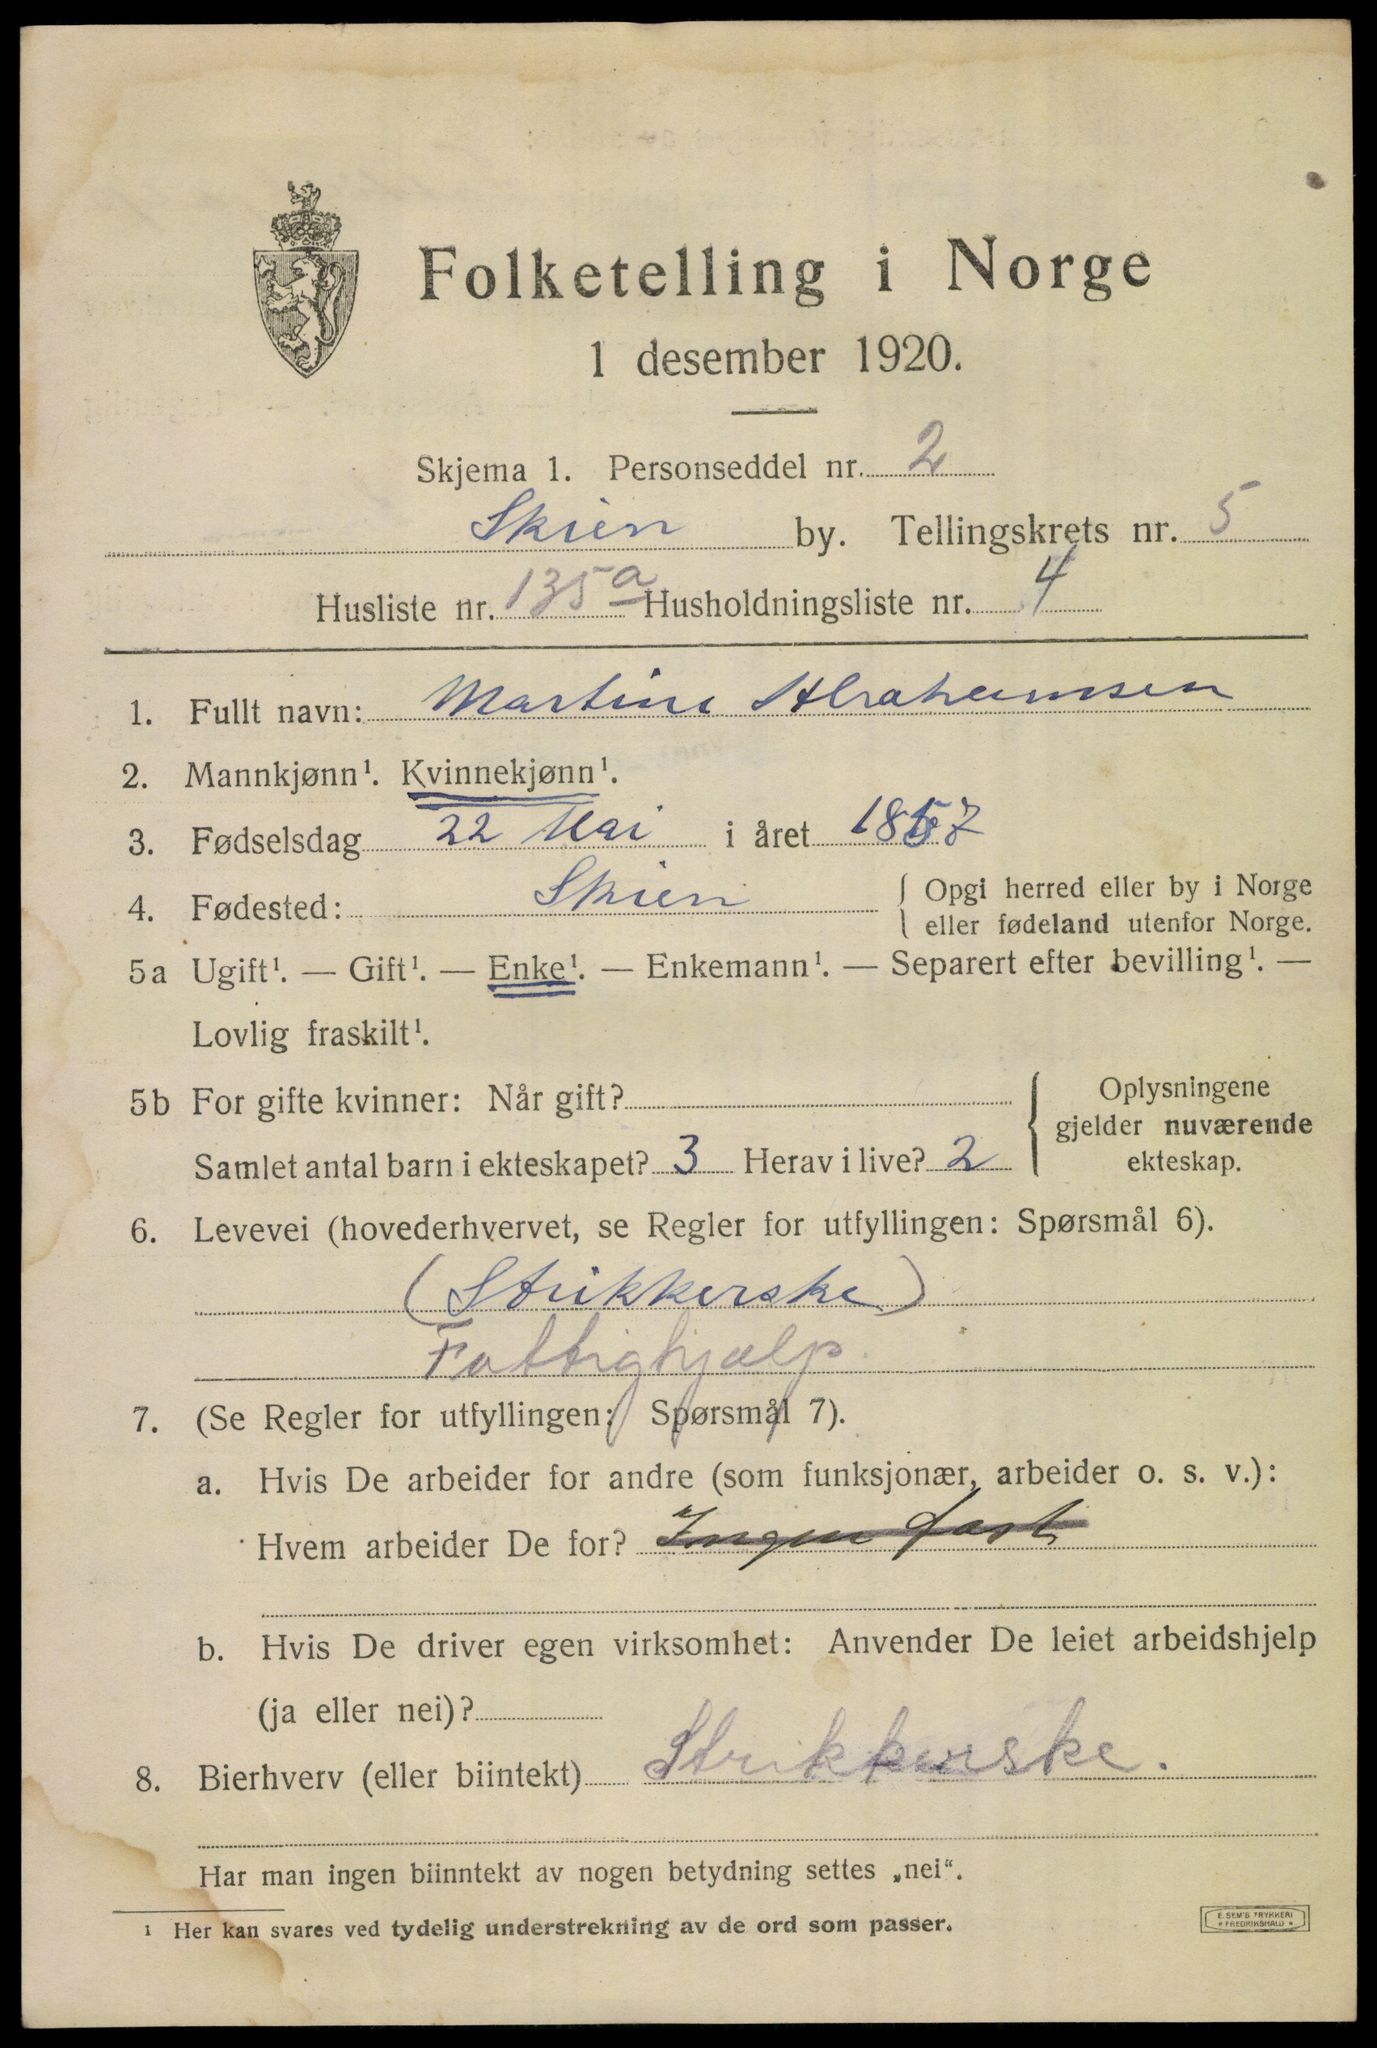 Folketelling i Norge
1 desember 1920.
Skjema 1. Personseddel nr. 2
Skien by. Tellingskrets nr. 5
Husliste nr. 135a Husholdningsliste nr. 4
1. Fullt navn: Martine Abrahamsen
2. Mannkjønn¹. Kvinnekjønn¹.
3. Fødselsdag 22 Mai i året 1857
4. Fødested: Skien { Opgi herred eller by i Norge
eller fødeland utenfor Norge.
5a Ugift¹. — Gift¹. — Enke¹. — Enkemann¹. — Separert efter bevilling¹. —
Lovlig fraskilt¹.
5b For gifte kvinner: Når gift?
Samlet antal barn i ekteskapet? 3 Herav i live? 2
{ Oplysningene
gjelder nuværende
ekteskap.
6. Levevei (hovederhvervet, se Regler for utfyllingen: Spørsmål 6).
(Strikkerske)
Fattighjælp
7. (Se Regler for utfyllingen: Spørsmål 7).
a. Hvis De arbeider for andre (som funksjonær, arbeider o. s. v.):
Hvem arbeider De for? Ingen fast
b. Hvis De driver egen virksomhet: Anvender De leiet arbeidshjelp
(ja eller nei)?
8. Bierhverv (eller biintekt) Strikkerske.
Har man ingen biinntekt av nogen betydning settes „nei“.
¹ Her kan svares ved tydelig understrekning av de ord som passer.
E. SEM'S TRYKKERI
* FREDRIKSHALD *